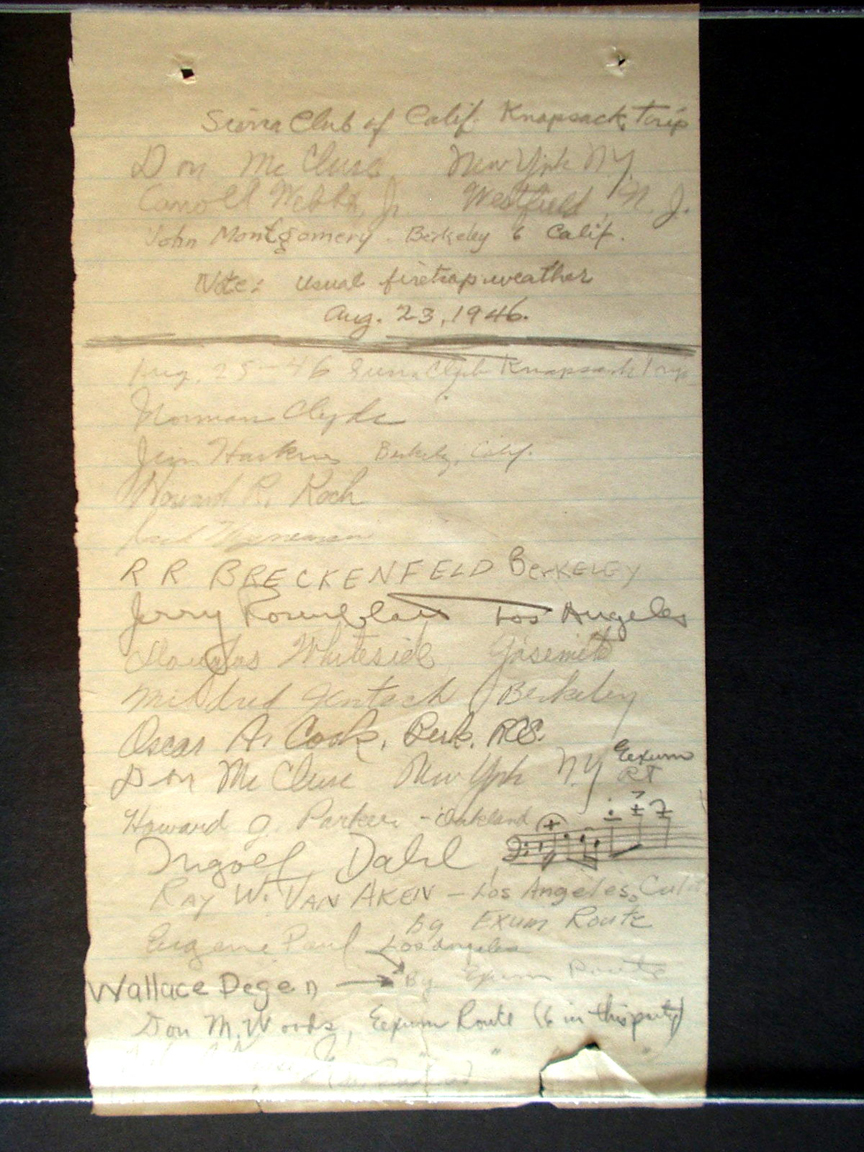 Sierra Club of Calif. Knapsack Trip
Don McClure New York NY
Carroll Webber, Jr. Westfield, N. J.
John Montgomery. Berkeley 6 Calif.
Note: usual firetrap weather
Aug. 23, 1946.
Aug. 25-46 Sierra Club Knapsack Trip
Norman Clyde
Jim Harkins Berkeley, Calif.
Howard R. Koch
R R BRECKENFELD BERKELEY
Jerry Rosenblatt Los Angeles
Douglas Whiteside Yosemite
Mildred Jentsch Berkeley
Oscar A. Cook, Berk. RCS.
Don McClure New York NY Eexum RT
Howard J. Parker - Oakland
Ingolf Dahl
RAY W. VAN AKEN - Los Angeles, Calif
By EXUM ROUTE
Eugene Paul Los Angeles
Wallace Degen → By Exum Route
Don M. Woods, Eexum Route (6 in this party)